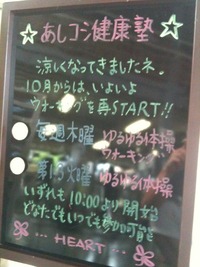 ☆あしコシ健康塾☆
涼しくなってきましたネ。
10月からは、いよいよ
ウォーキングを再START!!
毎週木曜 ゆるゆる体操
ウォーキング
第1.3火曜 ゆるゆる体操
いずれも10:00より開始
どなたでもいつでも参加可能です
… HEART …